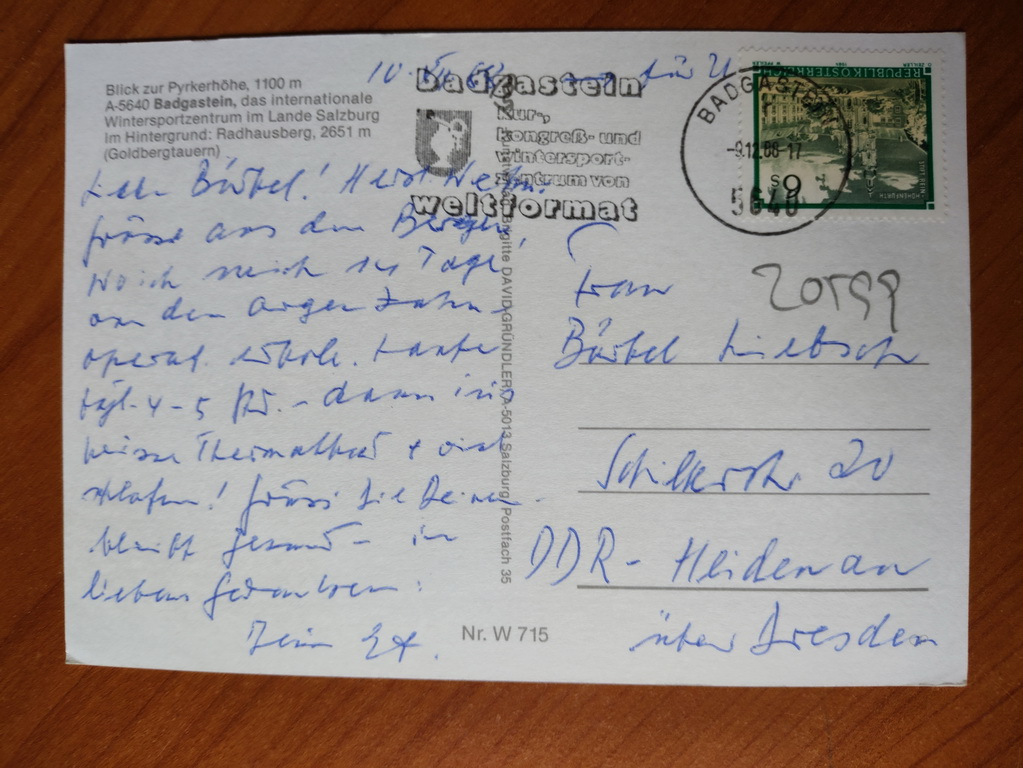 Blick zur Pyrkerhöhe, 1100 m
A-5640 Badgastein, das internationale
Wintersportzentrum im Lande Salzburg
Im Hintergrund: Radhausberg, 2651 m
(Goldbergtauern)
Badgastein
Kur-,
kongreß- und
wintersport-
zentrum von
weltformat
BADGASTEIN
-9.12.88-17
5640
REPUBLIK ÖSTERREICH
S 6
Bärbel! Herzl.
grüsse aus den Bergen,
wo ich mich 14 Tage
von den argen Zahn-
operat. erhole. Laufe
tägl. 4-5 Std. - dann ins
heisse Thermalbad + viel
schlafen! Grüss die Deinen
bleibt gesund - in
lieben Gedanken:
Brigitte DAVID-GRÜNDLER, A-5013 Salzburg, Postfach 35
Nr. W 715
Frau
Bärbel Liebsch
20
DDR - Heidenau
über Dresden